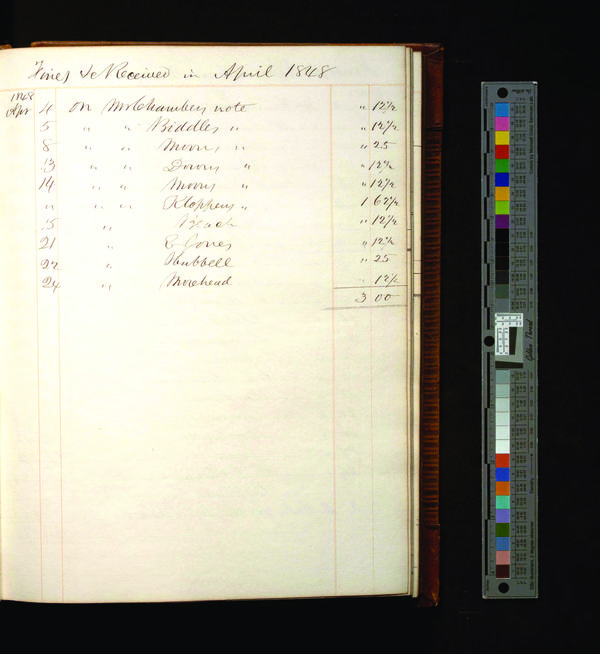 Fines &c Received in April 1848
1848
Apr 4 on Mr Chambers note " 12½
5 " " Biddles " " 12½
8 " " Moons " " 25
13 " " Downs " " 12½
14 " " Moons " " 12½
" " " Kloppens " 1 62½
15 " " 12½
21 " E Jones " 12½
22 " Hubbell " 25
24 " Morehead " 12½
3 00